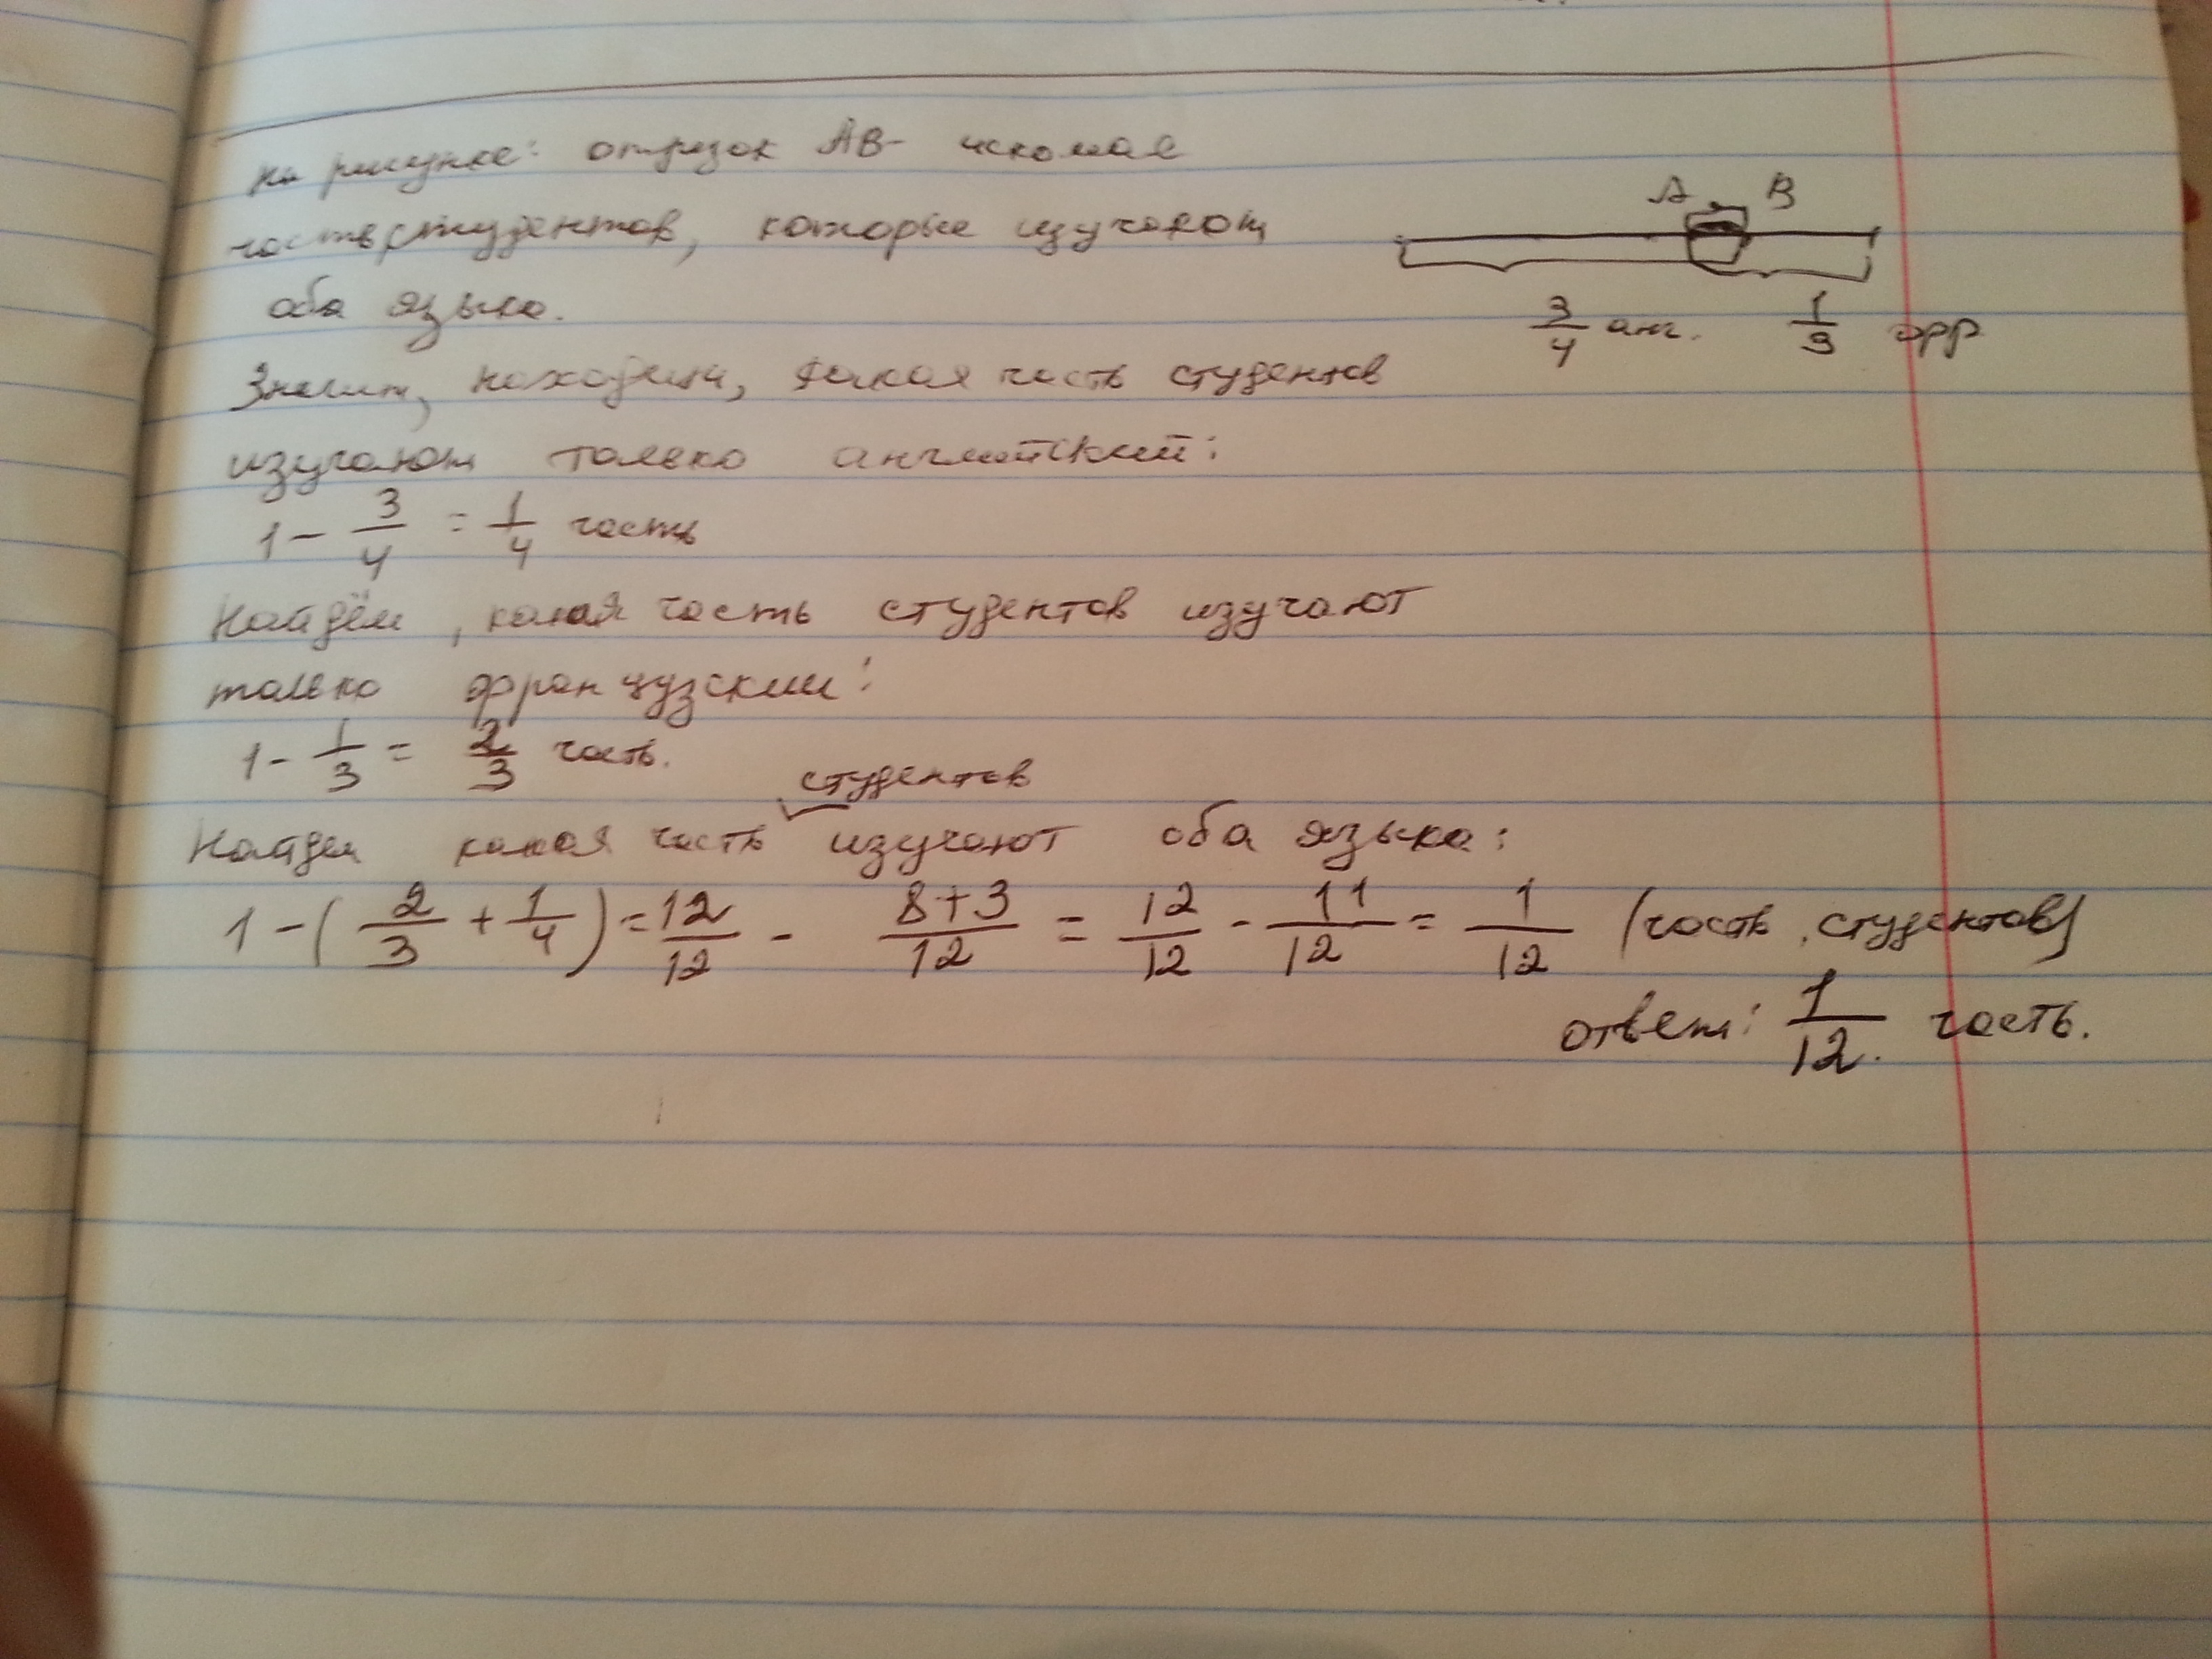 на рисунке: отрезок АВ- искомая
часть студентов, которые изучают
оба языка.
А В
3/4 анг. 1/3 фр
Значит, находим, какая часть студентов
изучают только английский:
1 - 3/4 = 1/4 часть
Найдём, какая часть студентов изучают
только французский:
1 - 1/3 = 2/3 часть.
студентов
Найдем какая часть изучают оба языка:
1 - (2/3 + 1/4) = 12/12 - 8+3/12 = 12/12 - 11/12 = 1/12 (часть студентов)
ответ: 1/12. часть.